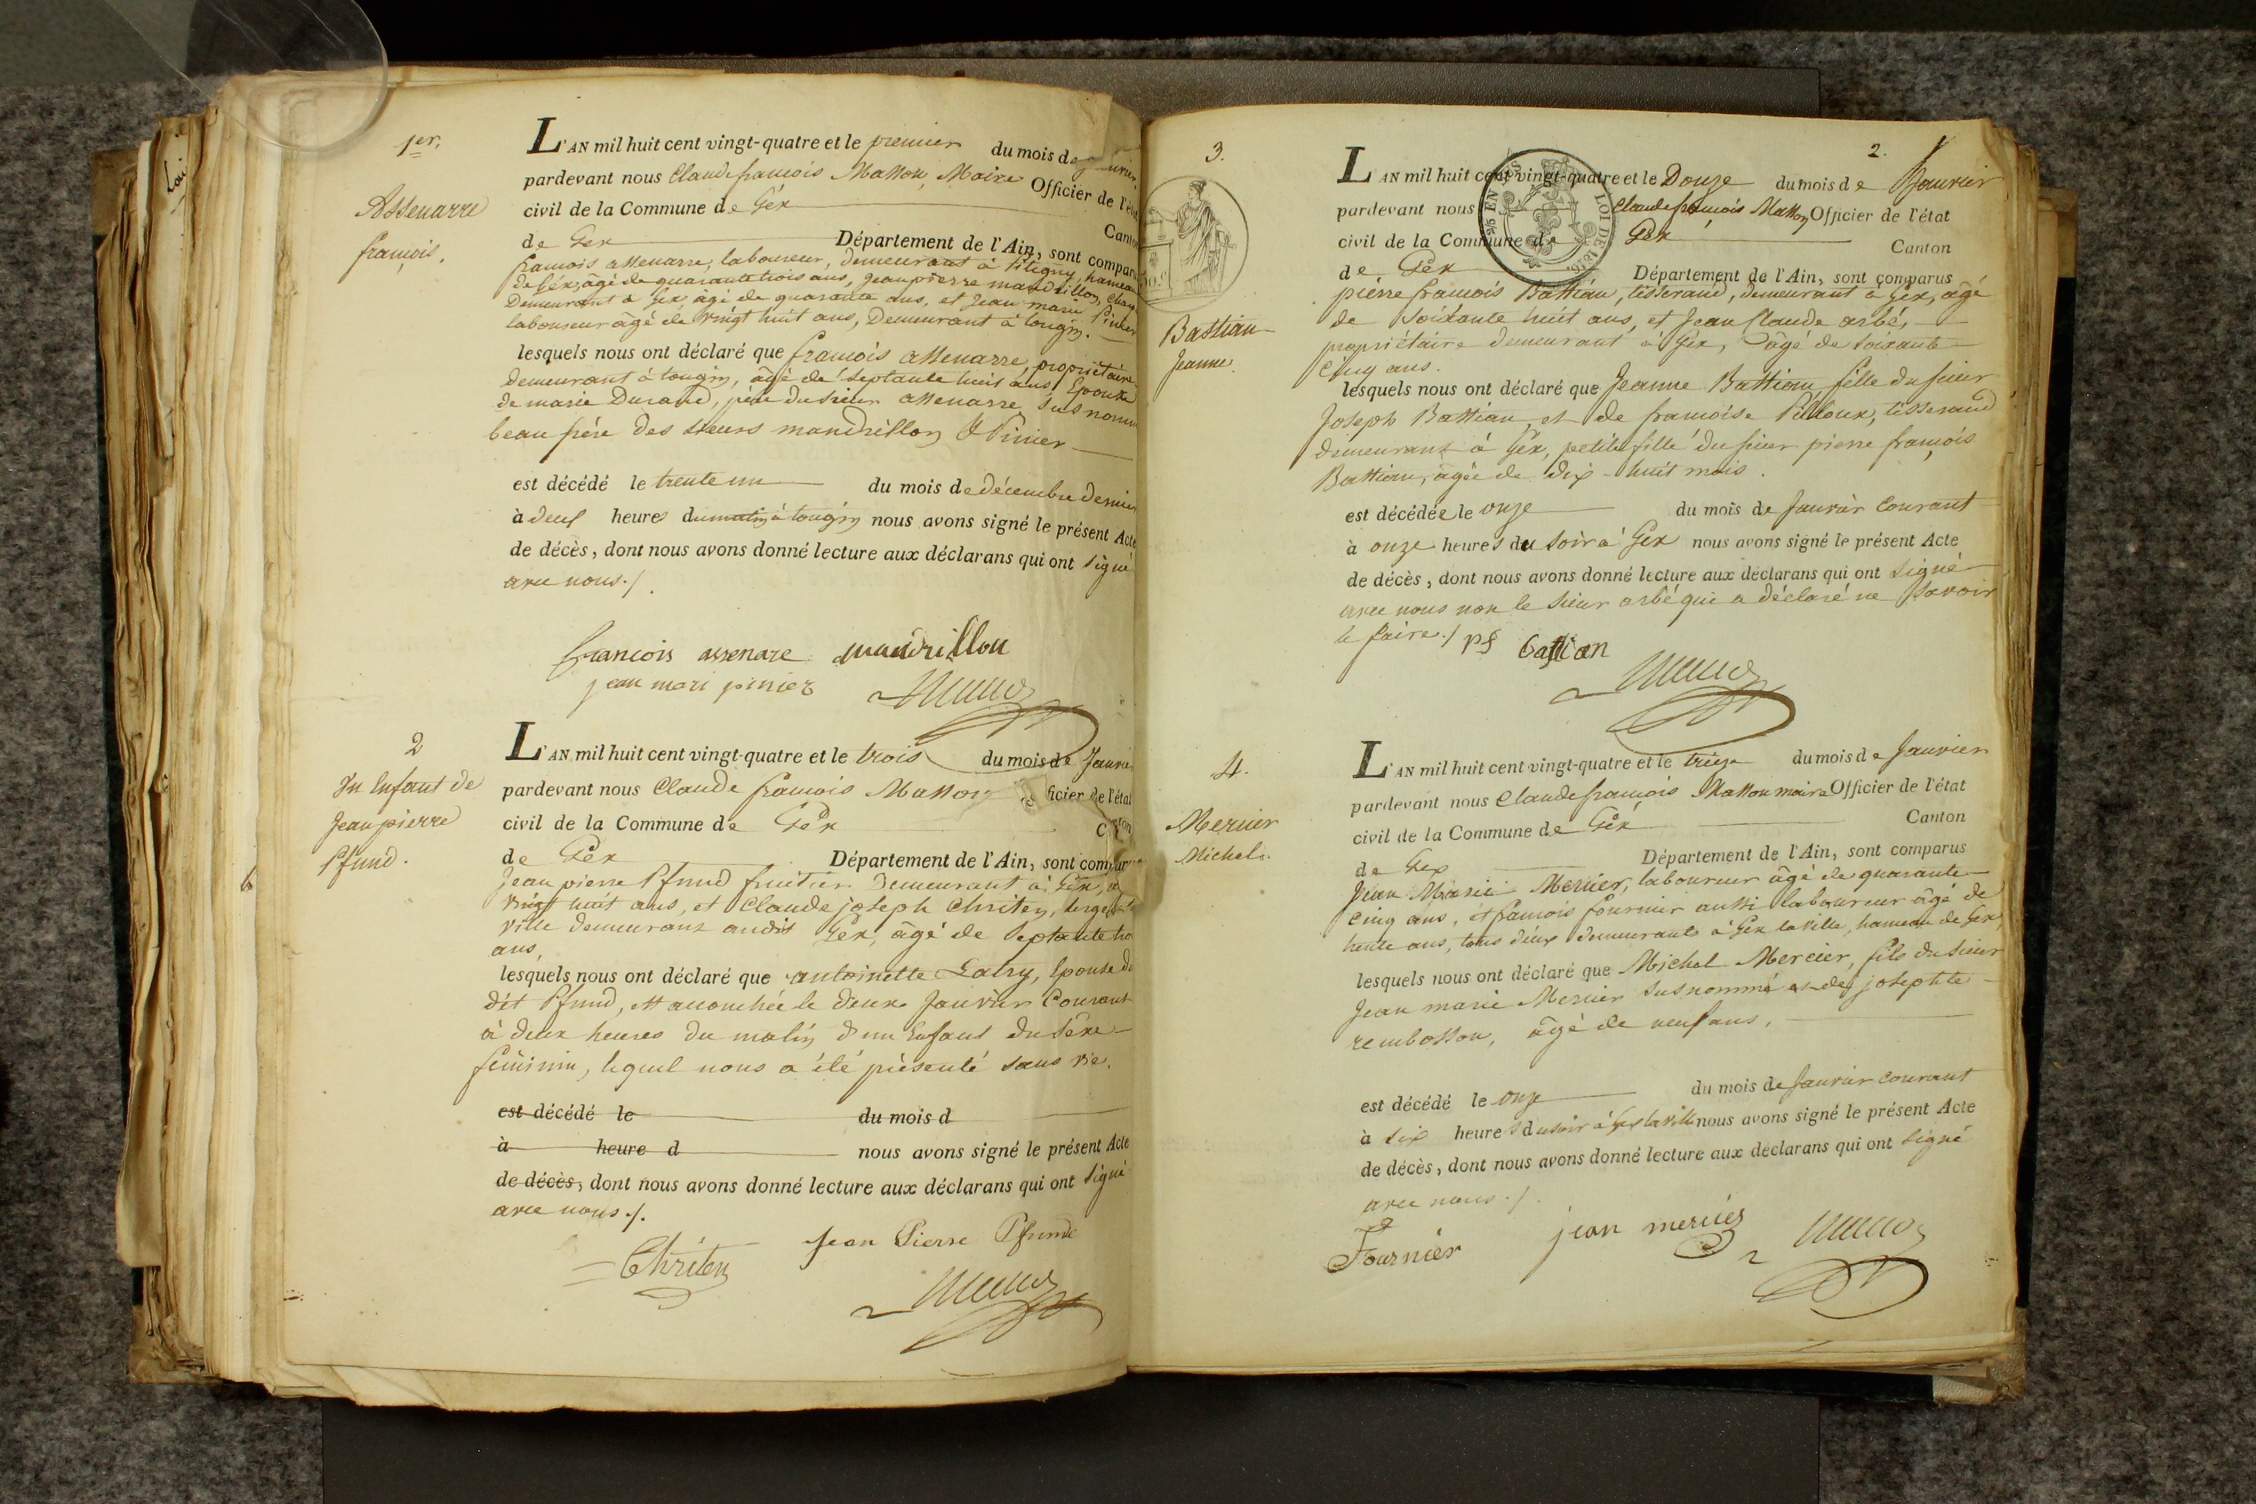 Loi
1er.
Assenarre
françois.
L'AN mil huit cent vingt-quatre et le premier du mois de
pardevant nous Claude françois Masson, Maire Officier de l'état
civil de la Commune de Gex Canton
de Gex Département de l'Ain, sont comparu
françois assenarre, laboureur, demeurant à Pitegny, hameau
de Géx, âgé de quarante trois ans, jean pierre mandrillon,
demeurant à Gex, âgé de quarante ans, et jean marie Pinier
laboureur âgé de vingt huit ans, demeurant à tougin.
lesquels nous ont déclaré que françois assenarre, propriétaire
demeurant à tougin, âgé de septante huit ans, Epoux
de marie Durand, père du sieur assenarre susnommé
beau frère des sieurs mandrillon & Pinier
est décédé le trente un du mois de décembre dernier
à deux heures du matin à tougin nous avons signé le présent Acte
de décès, dont nous avons donné lecture aux déclarans qui ont signé
avec nous./.
françois assenare mandrillon
jean mari pinier
2
Un Enfant de
Jean pierre
Pfund.
L'AN mil huit cent vingt-quatre et le trois du mois de Janvier
pardevant nous Claude françois Masson ficier de l'état
civil de la Commune de Géx
de Géx Département de l'Ain, sont compar
Jean pierre Pfund fruitier demeurant à Géx,
vingt huit ans, et Claude joseph Chriten,
ville demeurant audit Gex, âgé de septante
ans,
lesquels nous ont déclaré que antoinette Latry, Epouse du
dit Pfund, est accouchée le deux Janvier Courant
à deux heures du matin d'un Enfant du Séxe
féminin, lequel nous a été présenté sans vie.
est décédé le du mois d
à heure d nous avons signé le présent Acte
de décès, dont nous avons donné lecture aux déclarans qui ont signé
avec nous./.
Jean Pierre Pfund
Chriten
3.
Bastian
Jeanne.
2.
25 EN SUS
LOI DE 1816.
L'AN mil huit cent vingt-quatre et le Douze du mois de Janvier
pardevant nous Claude françois Masson Officier de l'état
civil de la Commune de Géx Canton
de Géx Département de l'Ain, sont comparus
pierre françois Bastian, tisserand, demeurant à Gex, âgé
de soixante huit ans, et Jean Claude arbé,
propriétaire demeurant à Géx, âgé de soixante
cinq ans.
lesquels nous ont déclaré que Jeanne Bastian, fille du sieur
Joseph Bastian, et de françoise Pilloux, tisserand
demeurant à Géx, petite fille du sieur pierre françois
Bastian, âgée de dix-huit mois.
est décédée le onze du mois de Janvier Courant
à onze heures du soir à Gex nous avons signé le présent Acte
de décès, dont nous avons donné lecture aux déclarans qui ont signé
avec nous non le sieur arbé qui a déclaré ne savoir
le faire./. pf bastian
4.
Mercier
Michel.
L'AN mil huit cent vingt-quatre et le treize du mois de Janvier
pardevant nous Claude françois Masson maire Officier de l'état
civil de la Commune de Géx Canton
de Gex Département de l'Ain, sont comparus
Jean Marie Mercier, laboureur âgé de quarante
cinq ans, et françois fournier aussi laboureur âgé de
trente ans, tous deux demeurants à Géx la ville, hameau de Gex,
lesquels nous ont déclaré que Michel Mercier, fils du sieur
Jean marie Mercier susnommé et de josephte
rembosson, âgé de neuf ans,
est décédé le onze du mois de Janvier courant
à six heures du soir à Gex la ville nous avons signé le présent Acte
de décès, dont nous avons donné lecture aux déclarans qui ont signé
avec nous./.
Fournier jean mercier